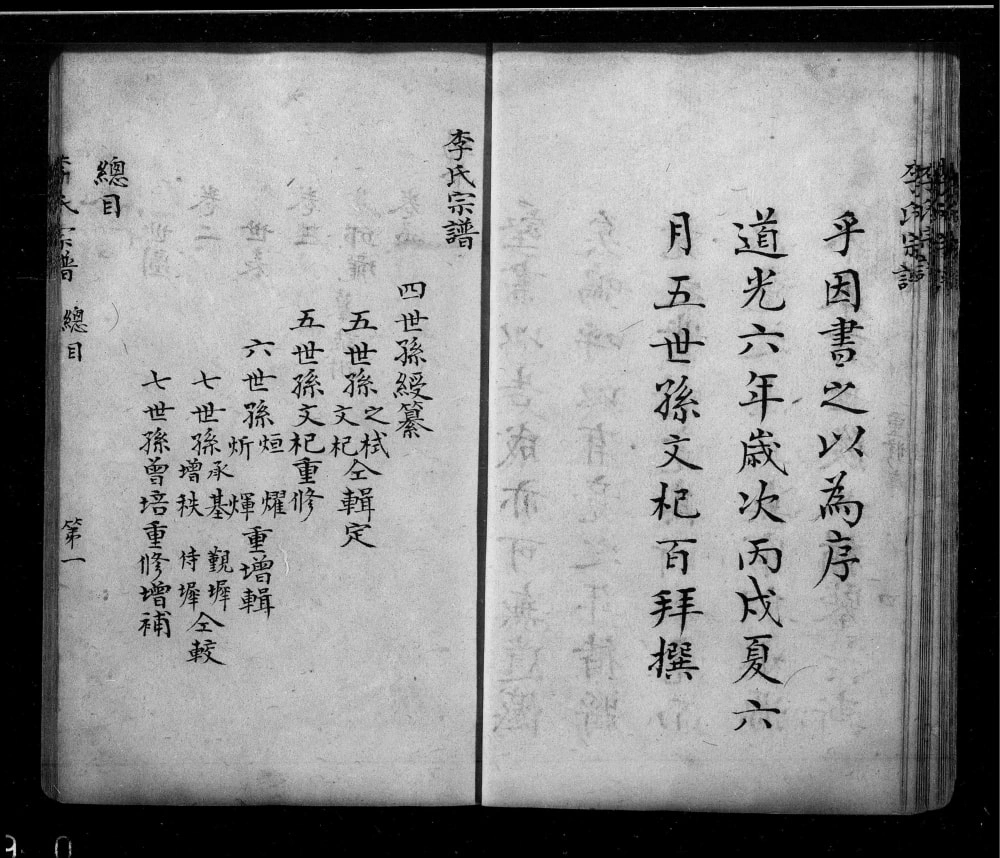 乎因書之以為序
道光六年歲次丙戌夏六
月五世孫文杞百拜撰
李氏宗譜
李氏宗譜
四世孫綬纂
五世孫之栻文杞仝輯定
五世孫文杞重修
六世孫烜炘燿煇重增輯
七世孫承基增秩覲墀侍墀仝較
七世孫曾培重修增補
總目
氏宗譜 總目 第一